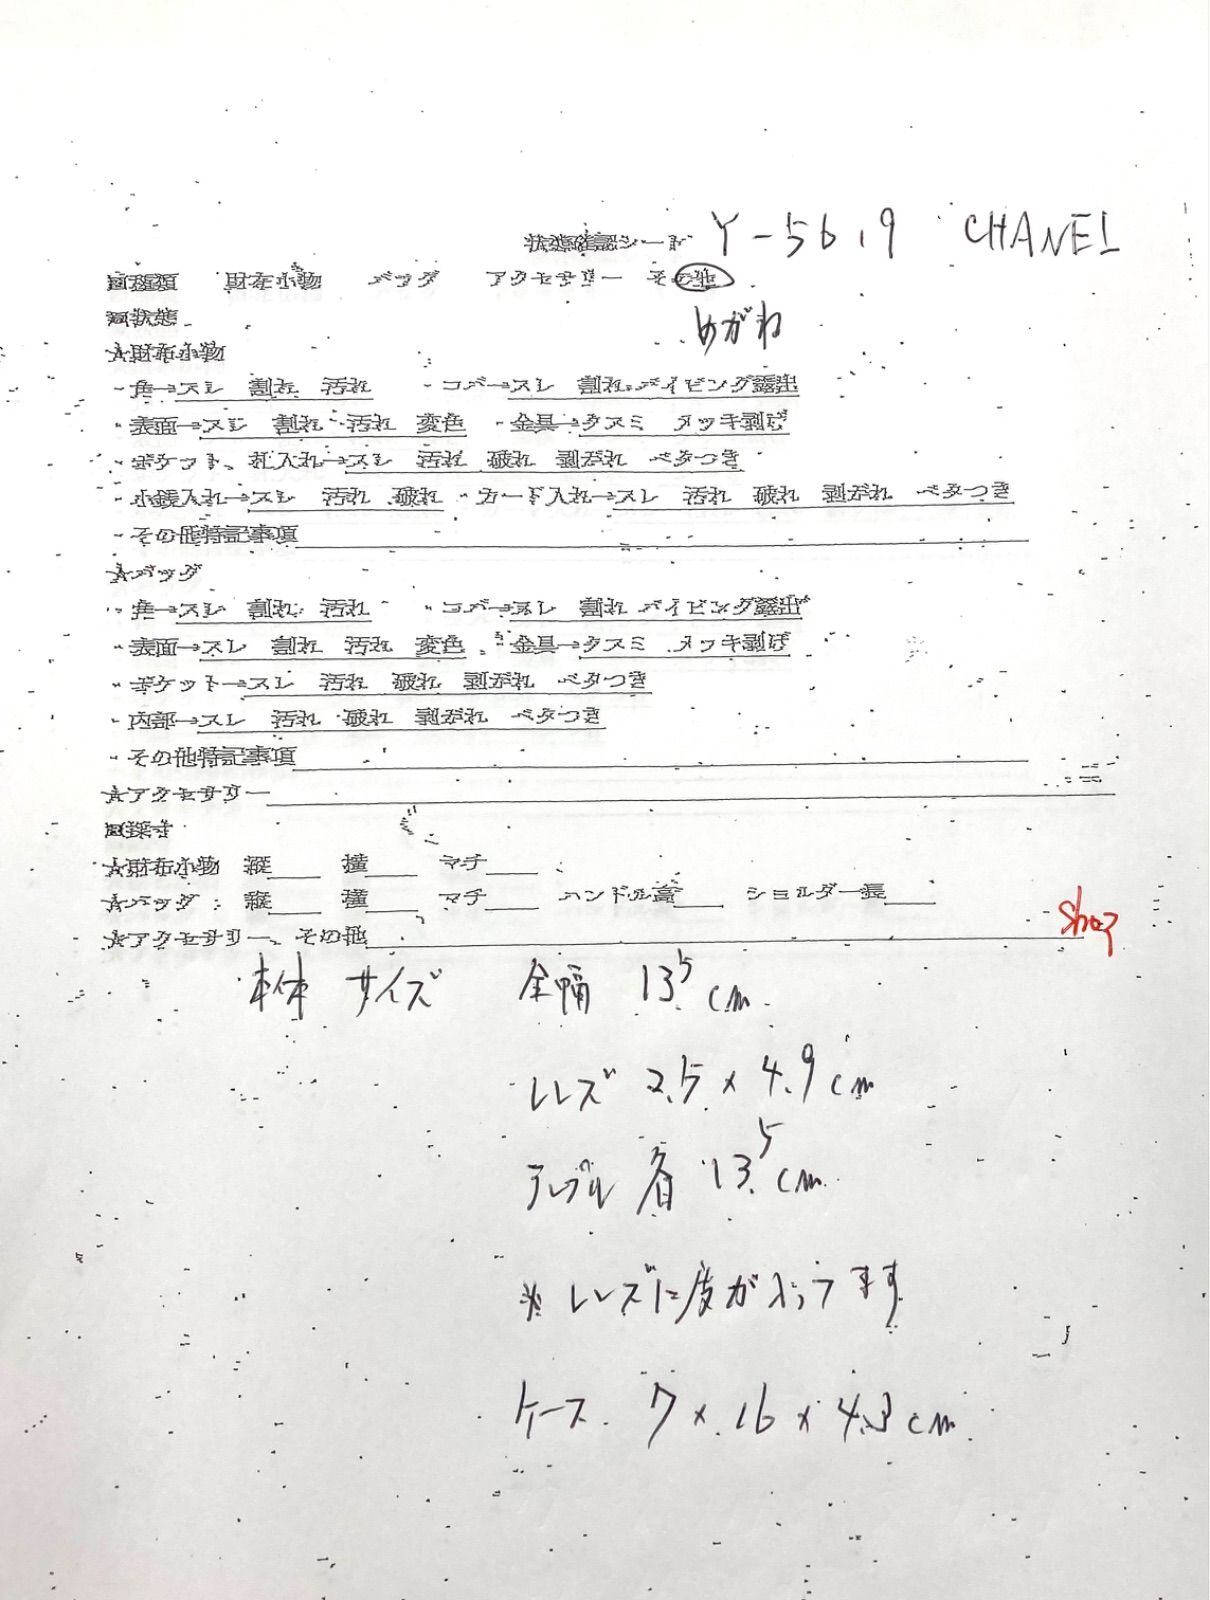 状態確認シート Y-5619 CHANEL
□種類 財布小物 バッグ アクセサリー その他
□状態 めがね
☆財布小物
・角→スレ 割れ 汚れ ・コバ→スレ 割れ パイピング露出
・表面→スレ 割れ 汚れ 変色 ・金具→クスミ メッキ剥げ
・ポケット、札入れ→スレ 汚れ 破れ 剥がれ ベタつき
・小銭入れ→スレ 汚れ 破れ ・カード入れ→スレ 汚れ 破れ 剥がれ ベタつき
・その他特記事項
☆バッグ
・角→スレ 割れ 汚れ ・コバ→スレ 割れ パイピング露出
・表面→スレ 割れ 汚れ 変色 ・金具→クスミ メッキ剥げ
・ポケット→スレ 汚れ 破れ 剥がれ ベタつき
・内部→スレ 汚れ 破れ 剥がれ ベタつき
・その他特記事項
☆アクセサリー
□採寸
☆財布小物 縦 横 マチ
☆バッグ 縦 横 マチ ハンドル高 ショルダー長
☆アクセサリー、その他
本体 サイズ 全幅 13.5cm
レンズ 2.5×4.9cm
テンプル 各 13.5cm
※レンズに度が入ってます
ケース 7×16×4.3cm